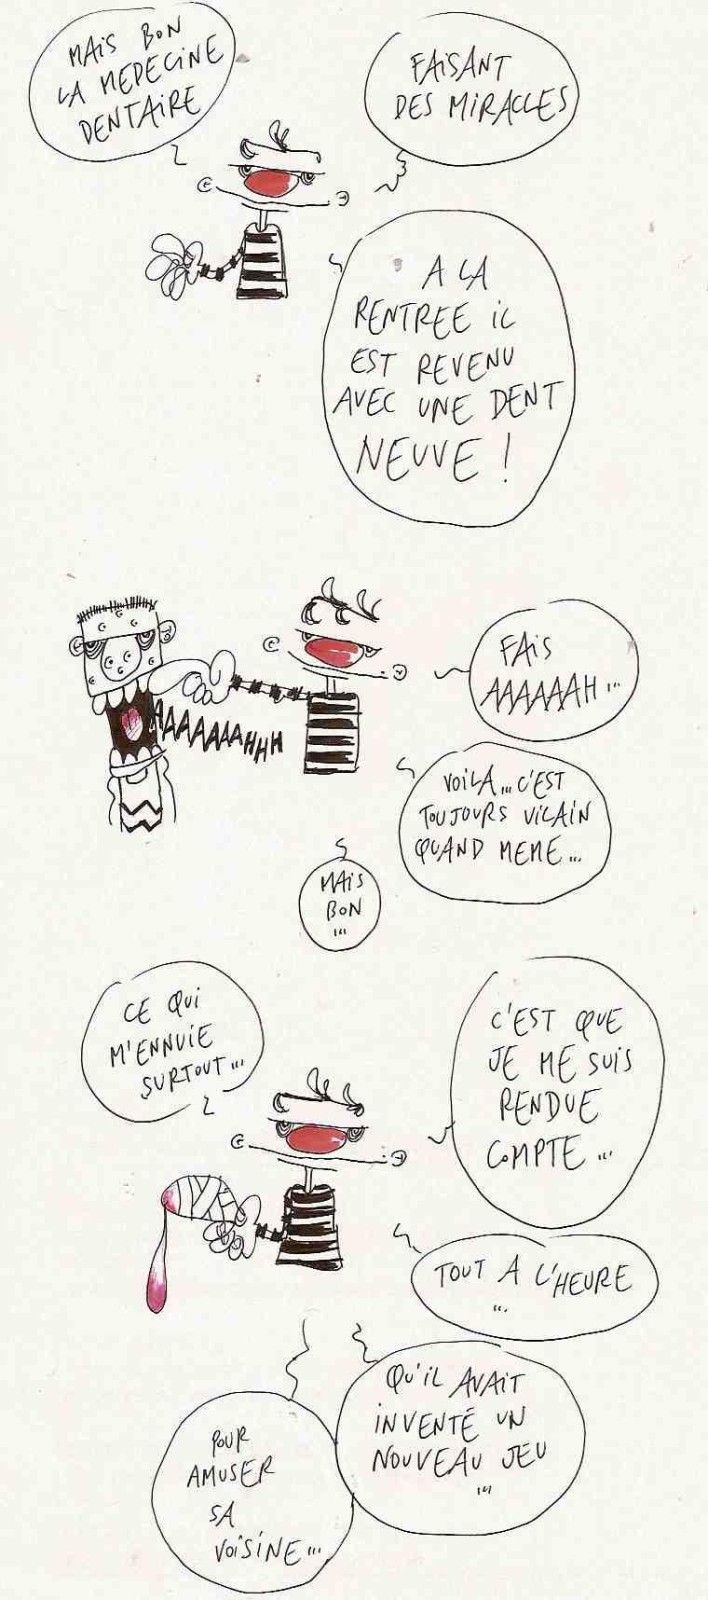 MAiS BON
LA MEDECINE
DENTAIRE
FAiSANT
DES MIRACLES
A LA
RENTREE iL
EST REVENU
AVEC UNE DENT
NEUVE !
FAiS
AAAAAAH...
AAAAAAAHHH
VOiLA...C'EST
TOUJOURS ViLAiN
QUAND MEME...
MAiS
BON
...
CE QUi
M'ENNUiE
SURTOUT...
C'EST QUE
JE ME SUiS
RENDUE
COMPTE...
TOUT A L'HEURE
...
QU'iL AVAiT
iNVENTÉ UN
NOUVEAU JEU
...
POUR
AMUSER
SA
VOiSiNE...